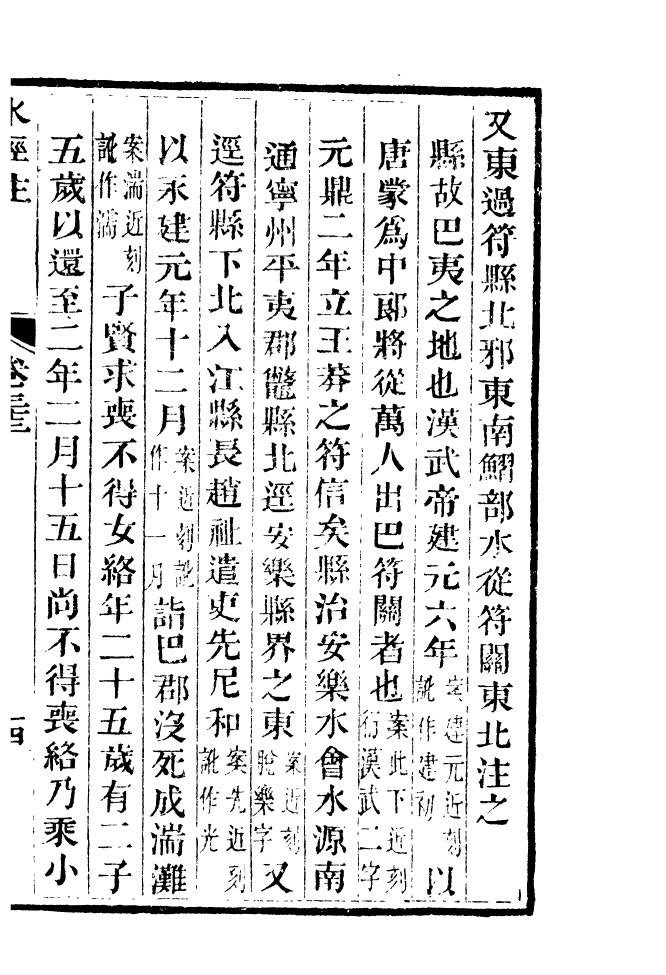 又東過符縣北邪東南鰼部水從符關東北注之
縣故巴夷之地也漢武帝建元六年案建元近刻訛作建初以
唐蒙爲中郎將從萬人出巴符關者也案此下近刻衍漢武二字
元鼎二年立王莽之符信矣縣治安樂水會水源南
通寧州平夷郡鷩縣北逕安樂縣界之東案近刻脫樂字又
逕符縣下北入江縣長趙祉遣吏先尼和案先近刻訛作光
以永建元年十二月案近刻訛作十一月詣巴郡沒死成湍灘
案湍近刻訛作濡子賢求喪不得女絡年二十五歲有二子
五歲以還至二年二月十五日尚不得喪絡乃乘小
水經注 卷三十三 四